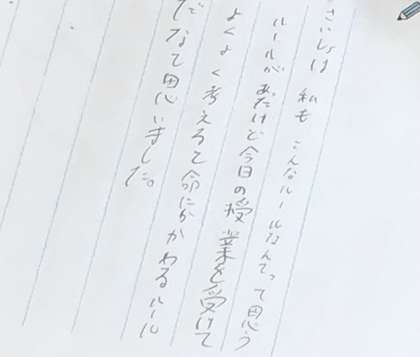 さいしょは 私も こんなルールなんてって思う
ルールがあたけど今日の授業を受けて
よくよく考えると命にかかわるルール
だなて思いました。